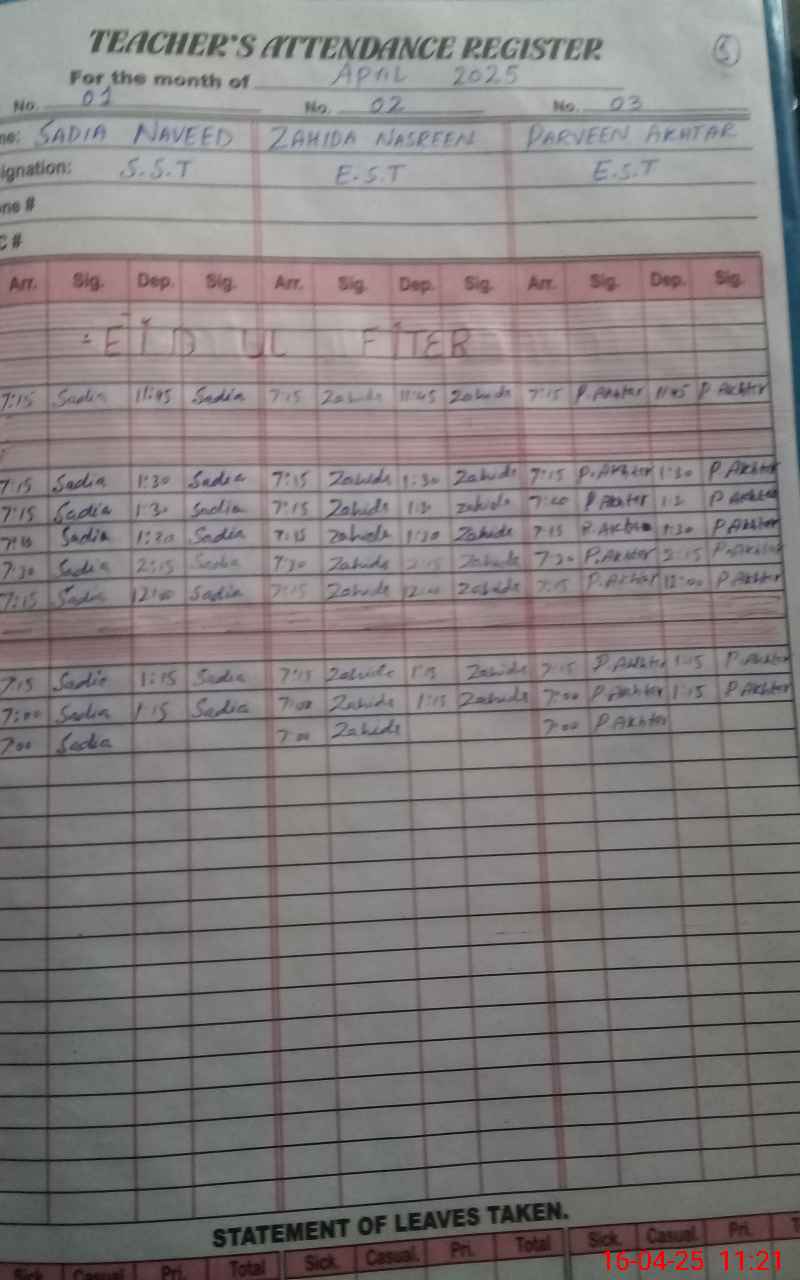 TEACHER'S ATTENDANCE REGISTER
5
For the month of APRIL 2025
No. 01 No. 02 No. 03
me: SADIA NAVEED ZAHIDA NASREEN PARVEEN AKHTAR
signation: S.S.T E.S.T E.S.T
one #
C #
Arr. Sig. Dep. Sig. Arr. Sig. Dep. Sig. Arr. Sig. Dep. Sig.
EID UL FITER
7:15 Sadia 11:45 Sadia 7:15 Zahida 11:45 Zahida 7:15 P.Akhtar 11:45 P Akhtar
7:15 Sadia 1:30 Sadia 7:15 Zahida 1:30 Zahida 7:15 P.Akhtar 1:30 P.Akhtar
7:15 Sadia 1:30 Sadia 7:15 Zahida Zahida P Akhtar P Akhtar
Sadia Sadia 7:15 Zahida 1:30 Zahida 7:15 P.Akhtar 1:30 P.Akhtar
7:30 Sadia 2:15 Sadia 7:30 Zahida 2:15 Zahida 7:30 P.Akhtar 2:15 P.Akhtar
7:15 Sadia 12:00 Sadia 7:15 Zahida 12:00 Zahida 7:15 P.Akhtar 12:00 P.Akhtar
7:15 Sadia 1:15 Sadia 7:15 Zahida 1:15 Zahida 7:15 P.Akhtar 1:15 P.Akhtar
7:00 Sadia 1:15 Sadia 7:00 Zahida 1:15 Zahida 7:00 P.Akhtar 1:15 P.Akhtar
7:00 Sadia 7:00 Zahida 7:00 P Akhtar
STATEMENT OF LEAVES TAKEN.
Sick Casual Pri. Total Sick. Casual. Pri. Total Sick. Casual. Pri. T
16-04-25 11:21